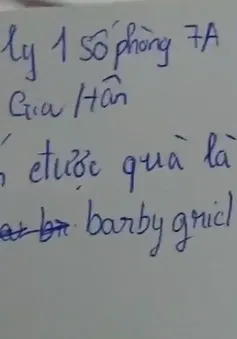 ly 1 số phòng 7A
Gia Hân
được quà là
barby gricl